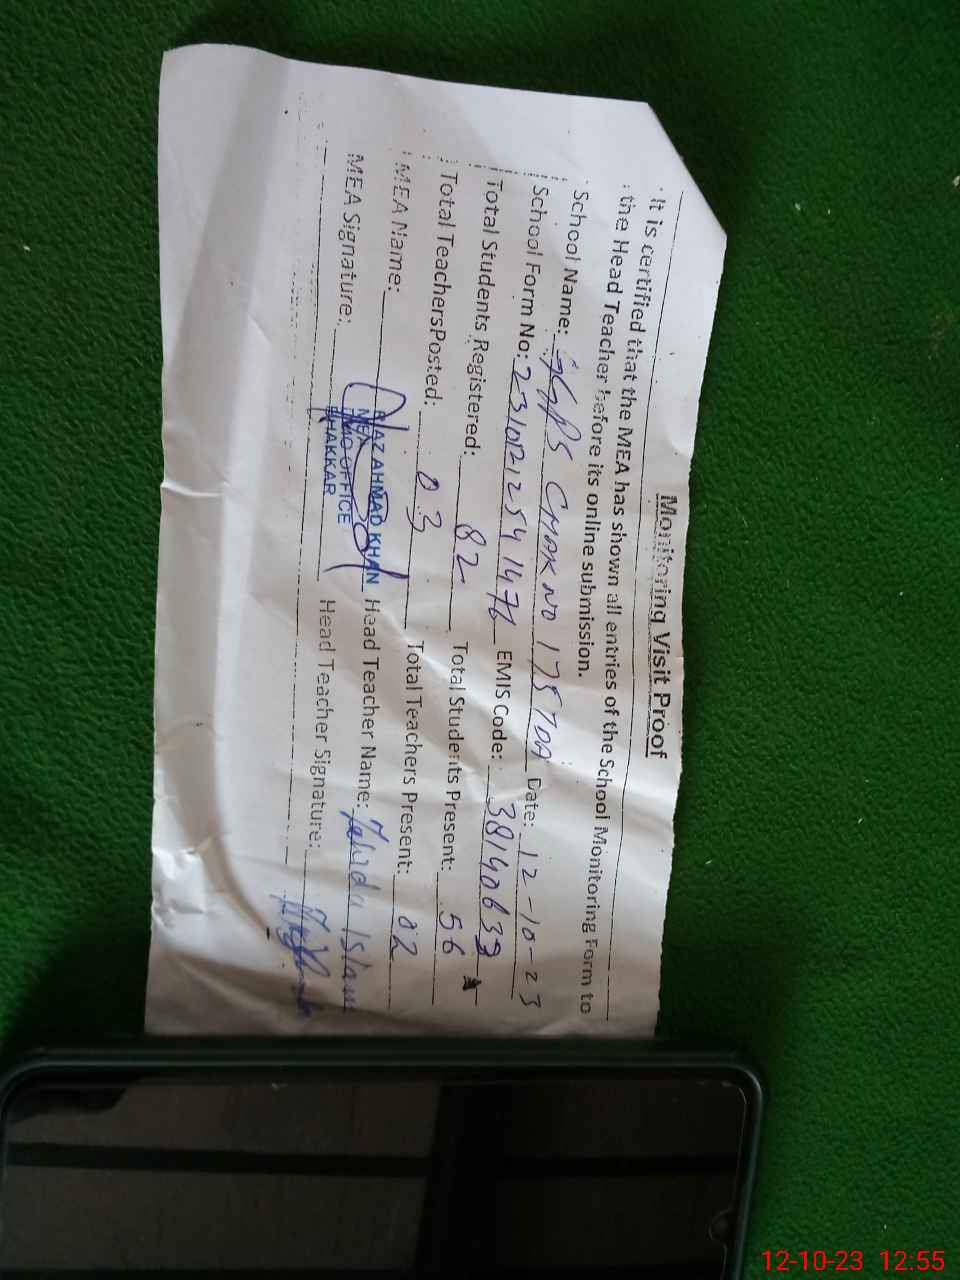 Monitoring Visit Proof
It is certified that the MEA has shown all entries of the School Monitoring Form to
the Head Teacher before its online submission.
School Name: GGPS CHAK NO 175 TDA Date: 12-10-23
School Form No: EMIS Code:
Total Students Registered: 82 Total Students Present: 56
Total TeachersPosted: 03 Total Teachers Present: 02
MEA Name: AZ AHMAD KHAN Head Teacher Name: Islam
MEA
OFFICE
MEA Signature: BHAKKAR Head Teacher Signature:
12-10-23 12:55